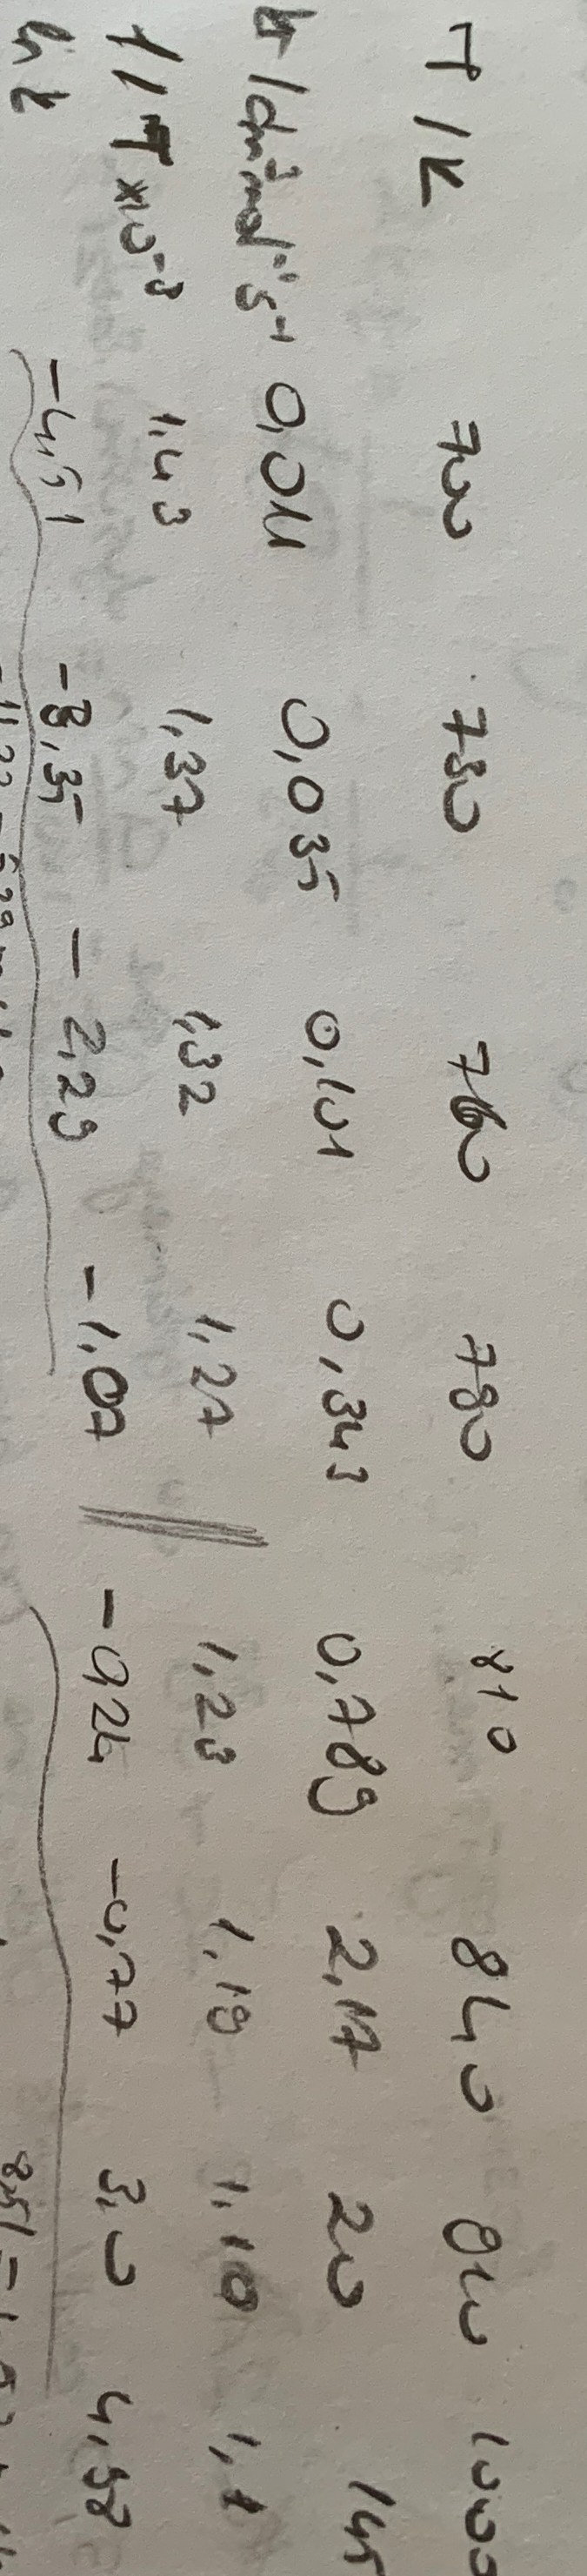 T/K 700 730 760 790 810 840 910 1000
k/dm³mol⁻¹s⁻¹ 0,011 0,035 0,101 0,343 0,789 2,17 20 145
1/T ×10⁻³ 1,43 1,37 1,32 1,27 1,23 1,19 1,10 1,1
ln k -4,51 -3,35 -2,29 -1,07 -0,24 -0,77 3,0 4,98